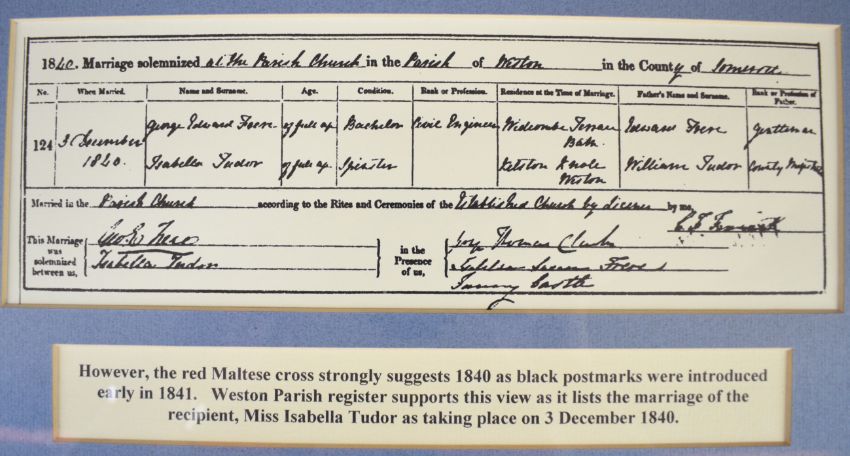 1840. Marriage solemnized at the Parish Church in the Parish of Weston in the County of Somerset
No. When Married. Name and Surname. Age. Condition. Rank or Profession. Residence at the Time of Marriage. Father's Name and Surname. Rank or Profession of Father.
124 3 December 1840. George Edward Frere of full age Bachelor Civil Engineer Widcombe Terrace Bath. Edward Frere Gentleman
Isabella Tudor of full age Spinster Kelston Knole Weston William Tudor County Magistrate
Married in the Parish Church according to the Rites and Ceremonies of the Established Church by Licence by me,
This Marriage was solemnized between us, Geo E Frere
Isabella Tudor
in the Presence of us, Thomas Clarke
Frere
Castle
However, the red Maltese cross strongly suggests 1840 as black postmarks were introduced
early in 1841. Weston Parish register supports this view as it lists the marriage of the
recipient, Miss Isabella Tudor as taking place on 3 December 1840.